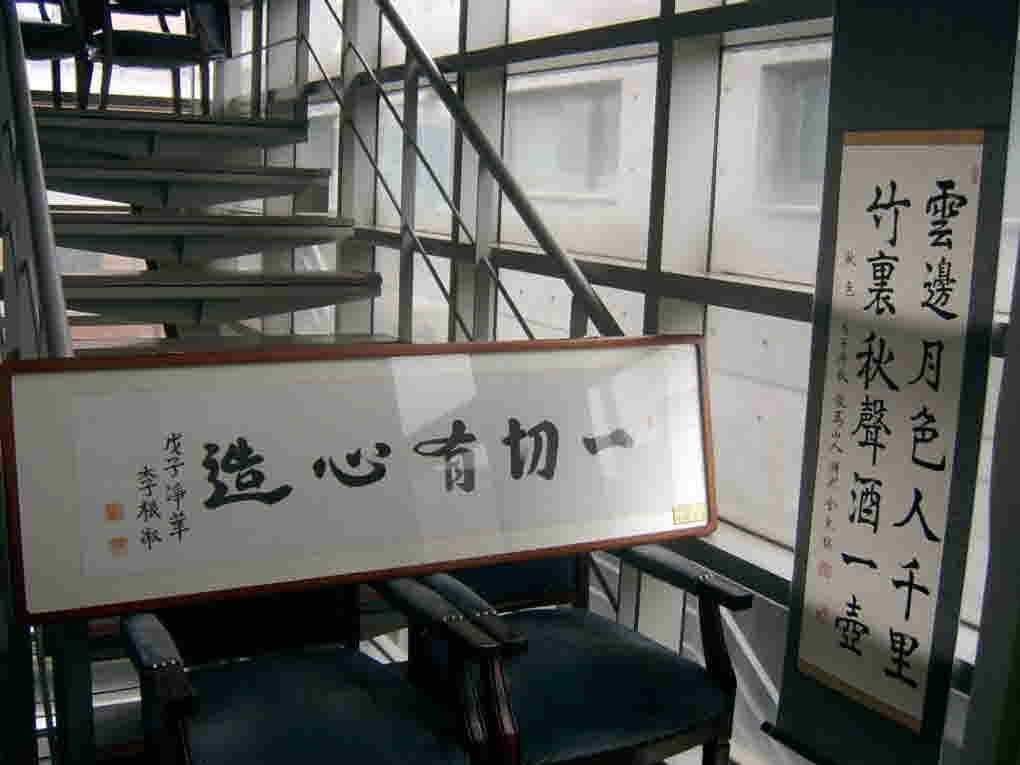 一切有心造
戊子淨華
雲邊月色人千里
竹裏秋聲酒一壺